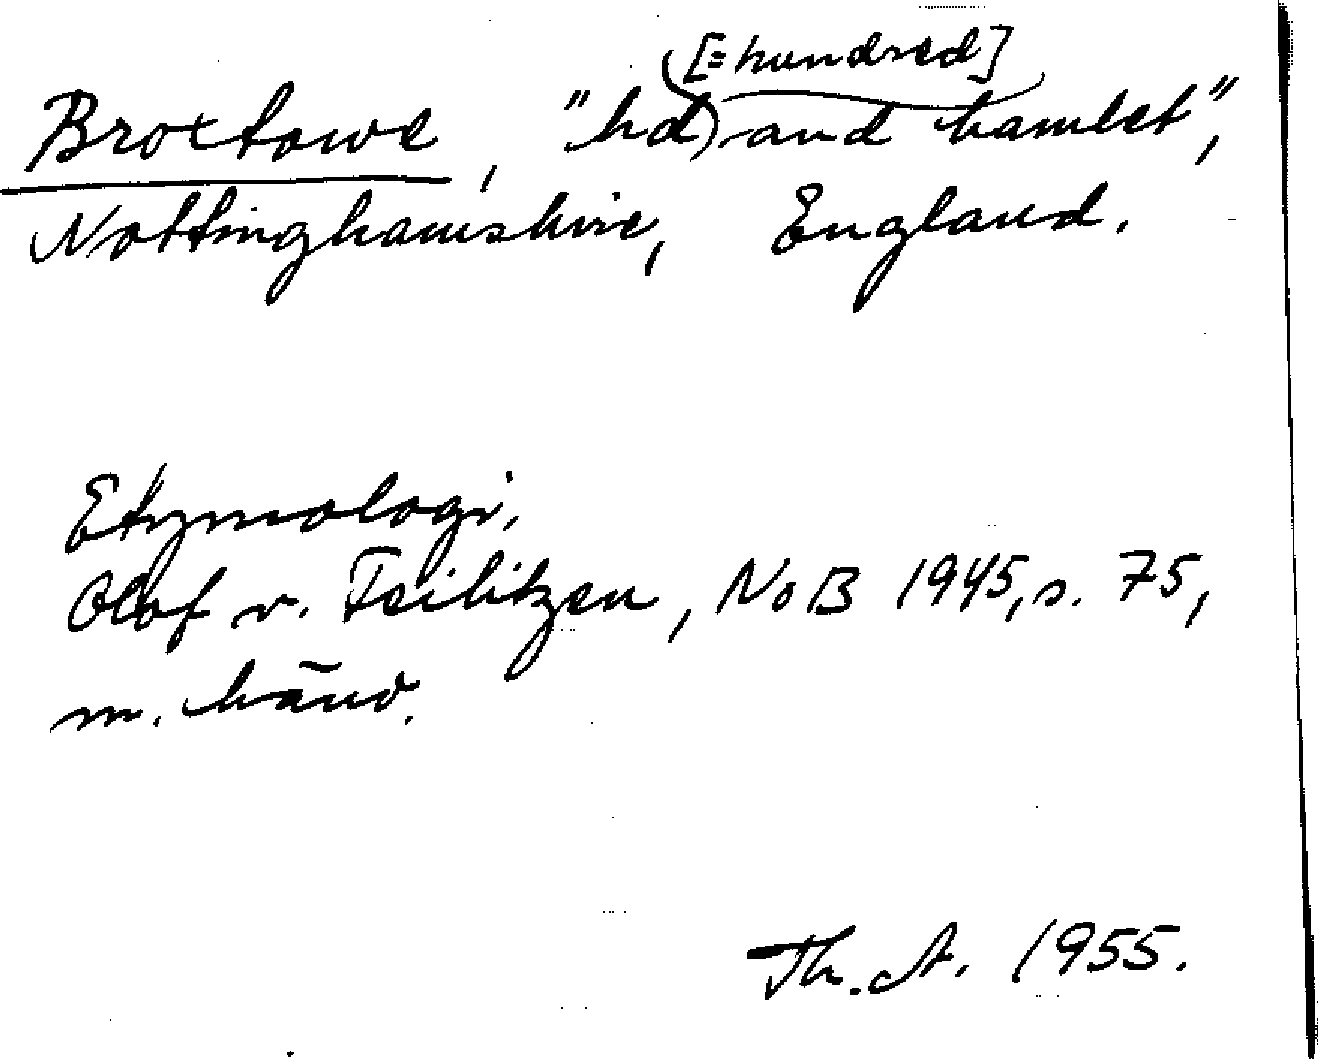 [= hundred]
Broxtowe, "hd) and hamlet",
Nottinghamshire, England.
Etymologi.
Olof v. Feilitzen, NoB 1945, s. 75,
m. hänv.
Th. A. 1955.